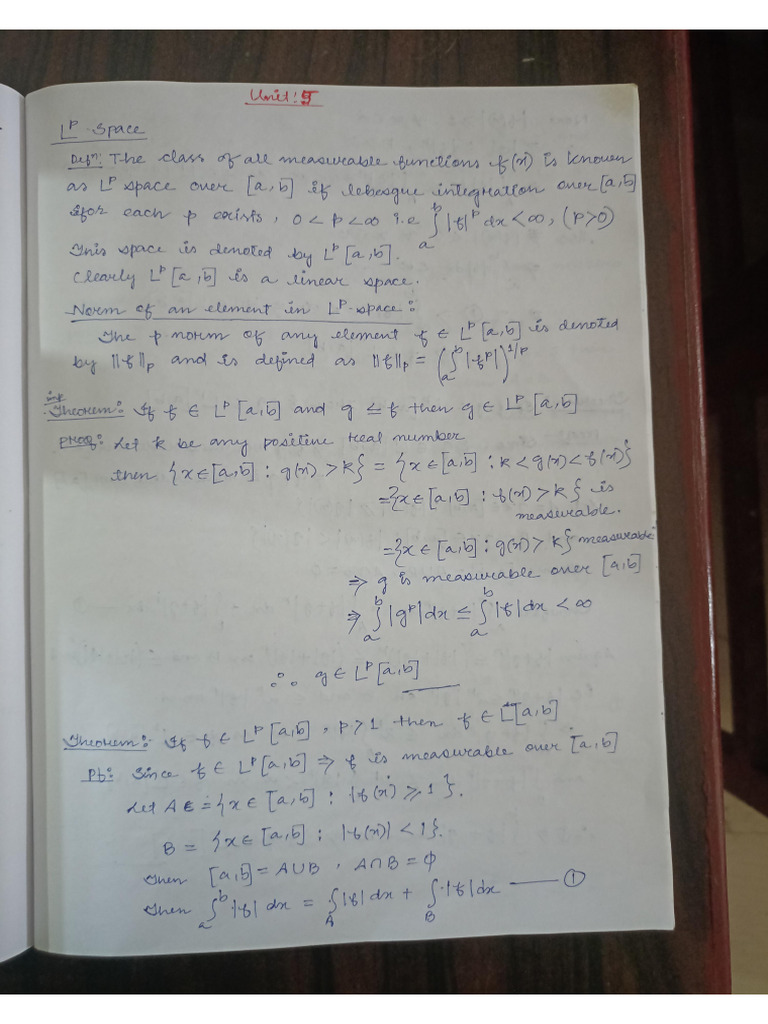 Unit: 5
L^p-Space
Defn: The class of all measurable functions f(x) is known
as L^p space over [a,b] if lebesgue integration over [a,b]
for each p exists, 0<p<∞ i.e ∫_a^b |f|^p dx < ∞, (p>0)
This space is denoted by L^p[a,b].
Clearly L^p[a,b] is a linear space.
Norm of an element in L^p-space:
The p norm of any element f ∈ L^p[a,b] is denoted
by ||f||_p and is defined as ||f||_p = (∫_a^b |f^p|)^{1/p}
imp
Theorem: If f ∈ L^p[a,b] and g ≤ f then g ∈ L^p[a,b]
Proof: Let k be any positive real number
then {x∈[a,b] : g(x) > k} = {x∈[a,b] : k<g(x)<f(x)}
= {x∈[a,b] : f(x) > k} is
measurable.
= {x∈[a,b] : g(x) > k} measurable
⇒ g is measurable over [a,b]
⇒ ∫_a^b |g^p| dx ≤ ∫_a^b |f| dx < ∞
∴ g ∈ L^p[a,b]
Theorem: If f ∈ L^p[a,b], p>1 then f ∈ L[a,b]
Pf: Since f ∈ L^p[a,b] ⇒ f is measurable over [a,b]
Let A = {x ∈ [a,b] : |f(x)| ≥ 1}.
B = {x ∈ [a,b] : |f(x)| < 1}.
Then [a,b] = A∪B, A∩B = φ
Then ∫_a^b |f| dx = ∫_A |f| dx + ∫_B |f| dx —— ①